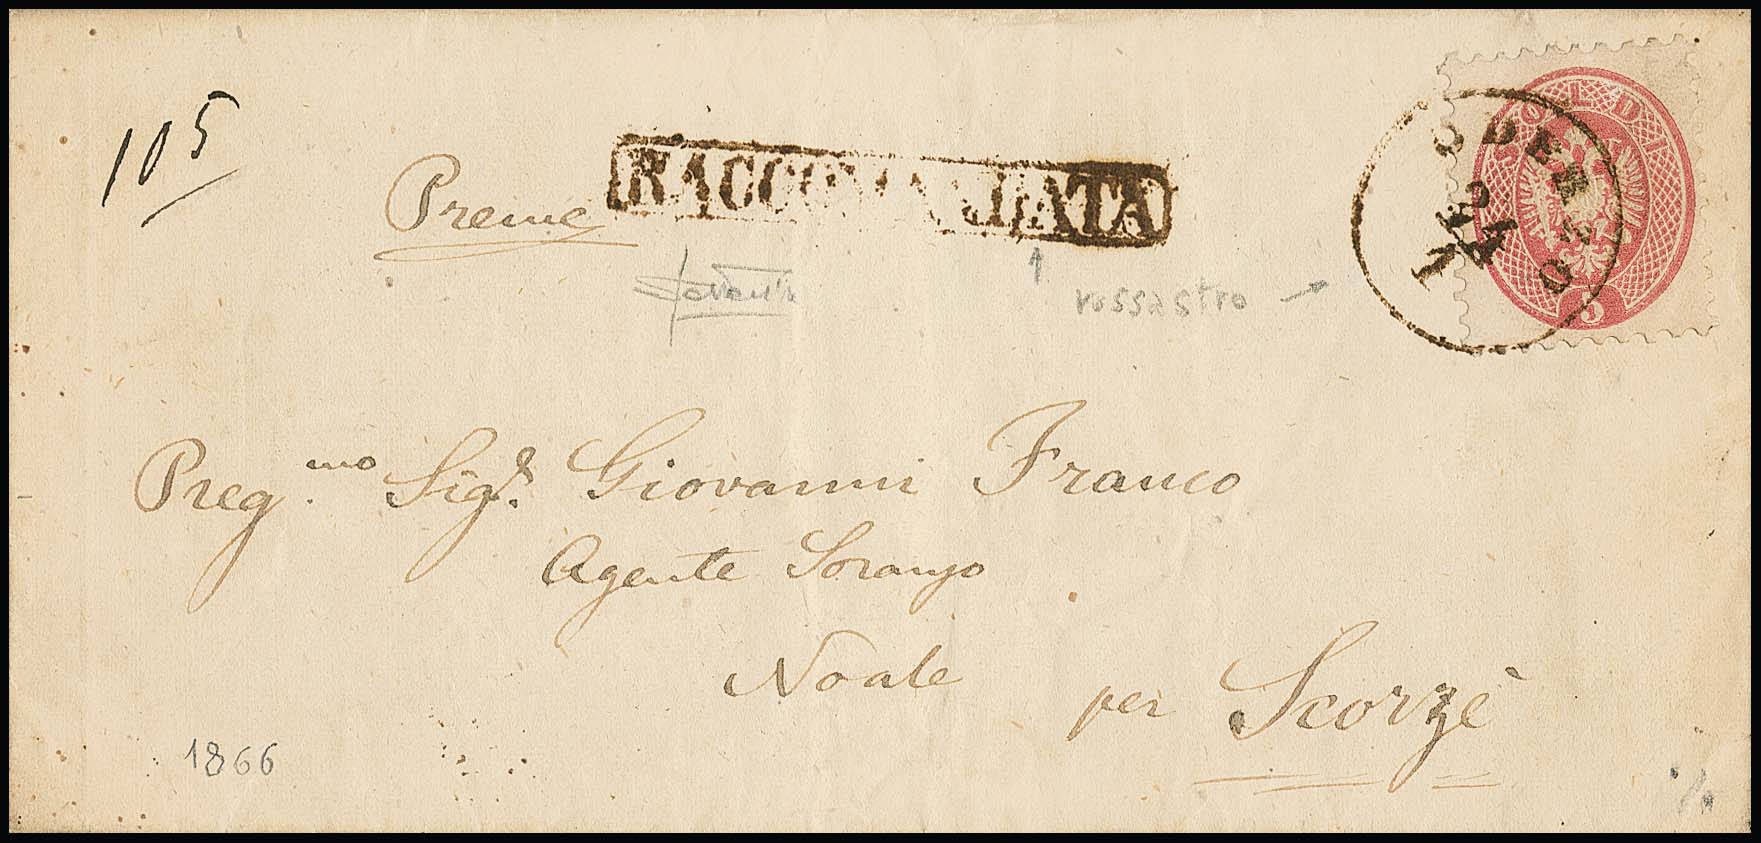 105
Preme
RACCOMANDATA
SOLDI
5
ODERZO
24
rossastro →
Preg.mo Sigr. Giovanni Franco
Agente Soranzo
Noale
per Scorzè
1866